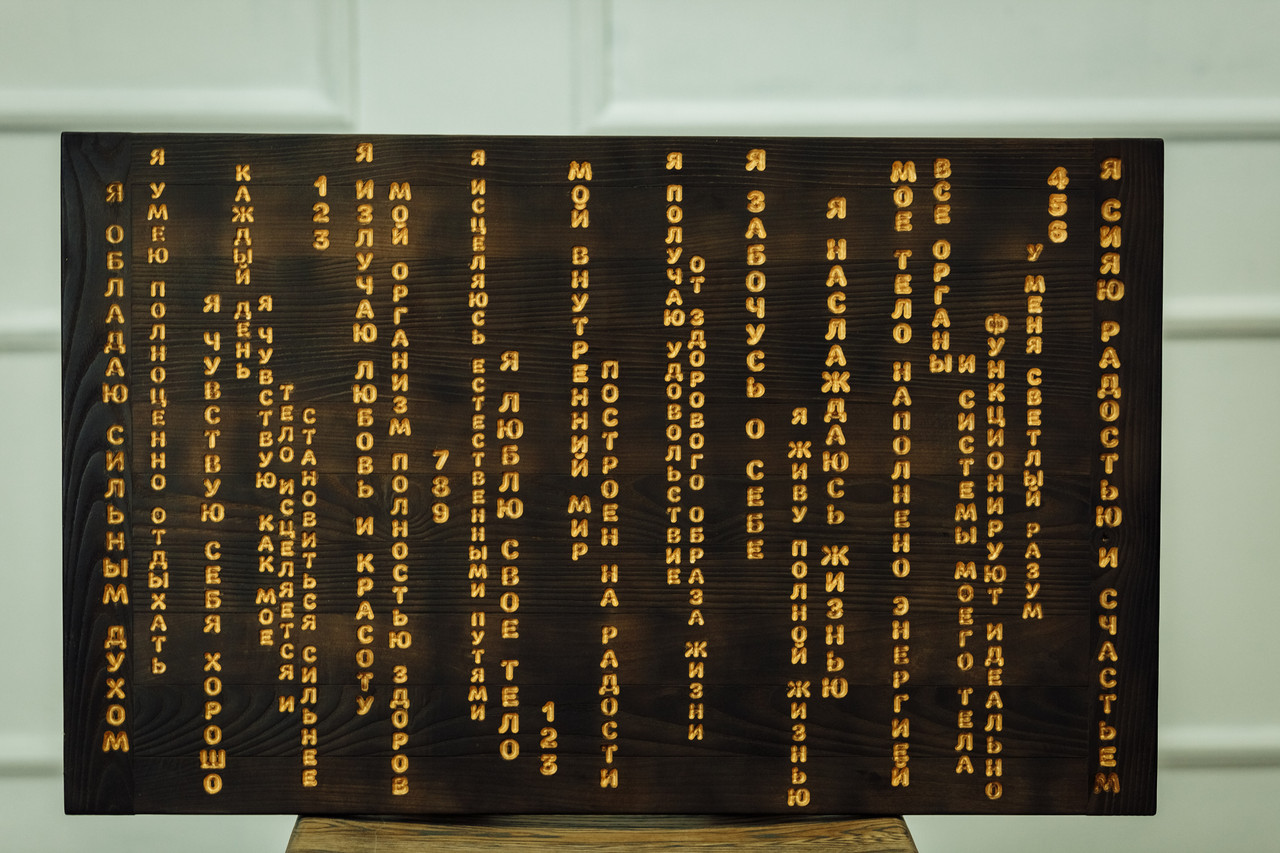 Я ОБЛАДАЮ СИЛЬНЫМ ДУХОМ
Я УМЕЮ ПОЛНОЦЕННО ОТДЫХАТЬ
Я ЧУВСТВУЮ СЕБЯ ХОРОШО
КАЖДЫЙ ДЕНЬ
Я ЧУВСТВУЮ КАК МОЕ
ТЕЛО ИСЦЕЛЯЕТСЯ И
СТАНОВИТЬСЯ СИЛЬНЕЕ
123
Я ИЗЛУЧАЮ ЛЮБОВЬ И КРАСОТУ
МОЙ ОРГАНИЗМ ПОЛНОСТЬЮ ЗДОРОВ
789
Я ИСЦЕЛЯЮСЬ ЕСТЕСТВЕННЫМИ ПУТЯМИ
Я ЛЮБЛЮ СВОЕ ТЕЛО
123
МОЙ ВНУТРЕННИЙ МИР
ПОСТРОЕН НА РАДОСТИ
Я ПОЛУЧАЮ УДОВОЛЬСТВИЕ
ОТ ЗДОРОВОГО ОБРАЗА ЖИЗНИ
Я ЗАБОЧУСЬ О СЕБЕ
Я ЖИВУ ПОЛНОЙ ЖИЗНЬЮ
Я НАСЛАЖДАЮСЬ ЖИЗНЬЮ
МОЕ ТЕЛО НАПОЛНЕНО ЭНЕРГИЕЙ
ВСЕ ОРГАНЫ
И СИСТЕМЫ МОЕГО ТЕЛА
ФУНКЦИОНИРУЮТ ИДЕАЛЬНО
У МЕНЯ СВЕТЛЫЙ РАЗУМ
456
Я СИЯЮ РАДОСТЬЮ И СЧАСТЬЕМ